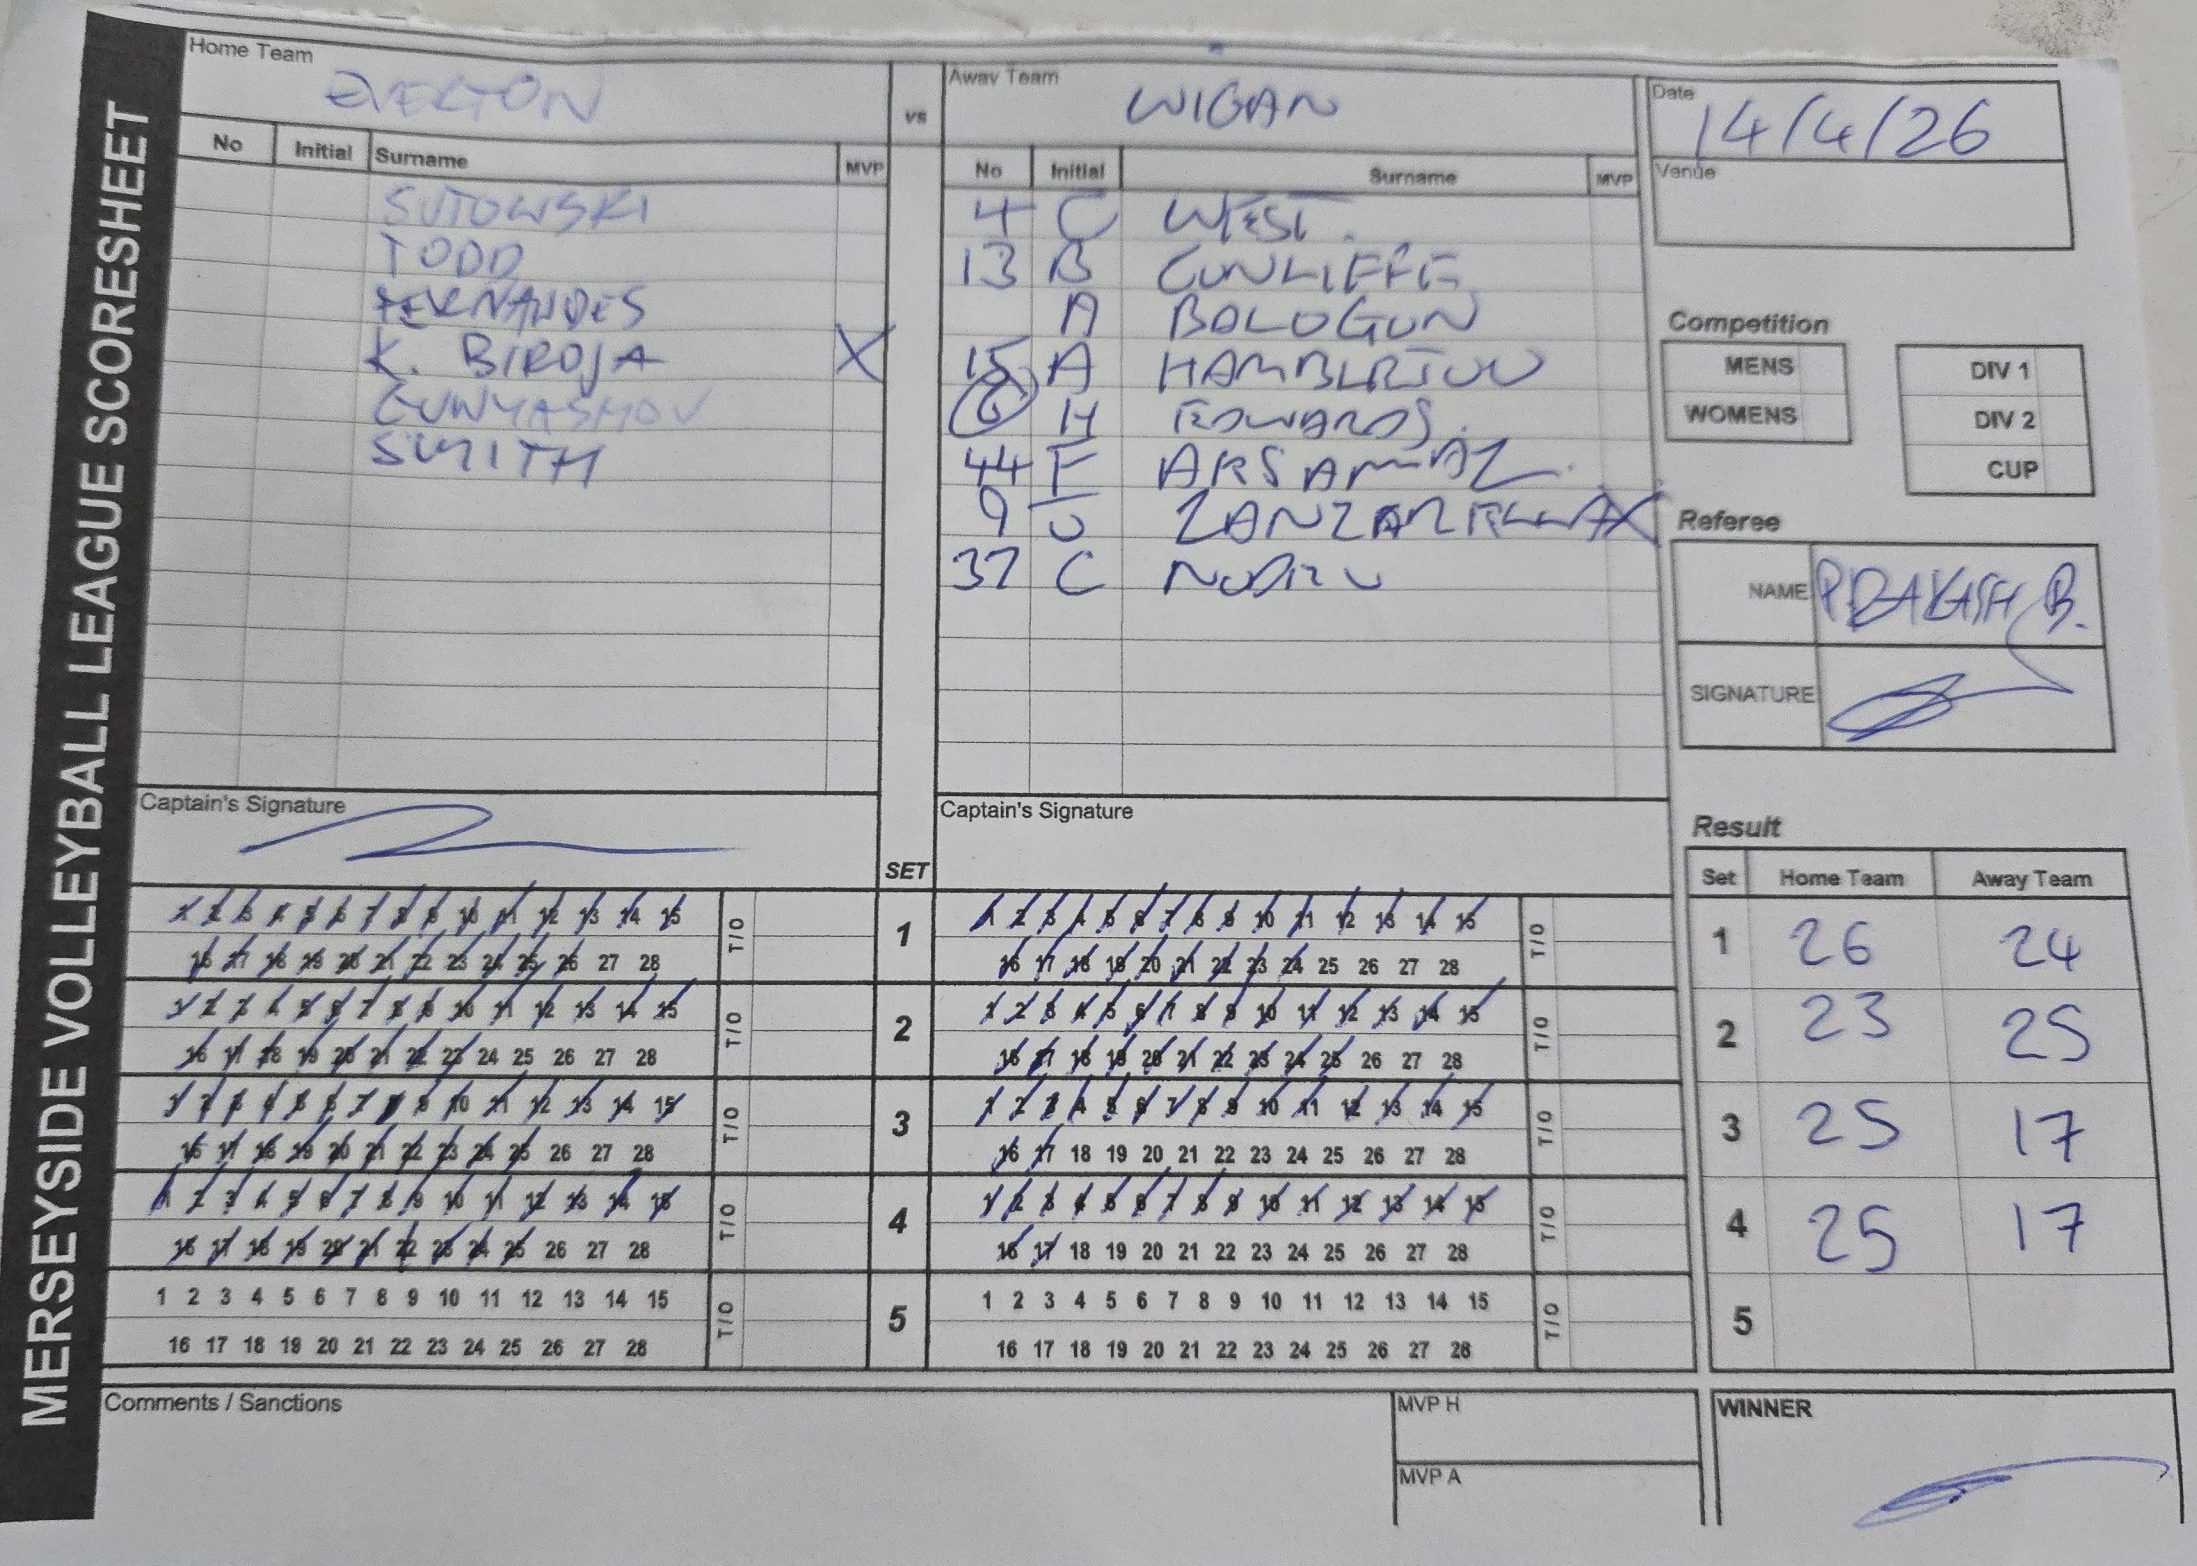 MERSEYSIDE VOLLEYBALL LEAGUE SCORESHEET
Home Team
EVERTON
vs
Away Team
WIGAN
Date
14/4/26
Venue
No Initial Surname MVP
No Initial Surname MVP
SUTOWSKI
TODD
FERNANDES
K. BIROJA X
SMITH
4 C WEST.
13 B CUNLIFFE
A BALOGUN
15 A HAMBLETON
6 H EDWARDS.
44 F
9 J X
37 C
Competition
MENS
WOMENS
DIV 1
DIV 2
CUP
Referee
NAME PRAKASH B.
SIGNATURE
Captain's Signature
SET
Captain's Signature
1 2 3 4 5 6 7 8 9 10 11 12 13 14 15 T/O 1 1 2 3 4 5 6 7 8 9 10 11 12 13 14 15 T/O
16 17 18 19 20 21 22 23 24 25 26 27 28 16 17 18 19 20 21 22 23 24 25 26 27 28
1 2 3 4 5 6 7 8 9 10 11 12 13 14 15 T/O 2 1 2 3 4 5 6 7 8 9 10 11 12 13 14 15 T/O
16 17 18 19 20 21 22 23 24 25 26 27 28 16 17 18 19 20 21 22 23 24 25 26 27 28
1 2 3 4 5 6 7 8 9 10 11 12 13 14 15 T/O 3 1 2 3 4 5 6 7 8 9 10 11 12 13 14 15 T/O
16 17 18 19 20 21 22 23 24 25 26 27 28 16 17 18 19 20 21 22 23 24 25 26 27 28
1 2 3 4 5 6 7 8 9 10 11 12 13 14 15 T/O 4 1 2 3 4 5 6 7 8 9 10 11 12 13 14 15 T/O
16 17 18 19 20 21 22 23 24 25 26 27 28 16 17 18 19 20 21 22 23 24 25 26 27 28
1 2 3 4 5 6 7 8 9 10 11 12 13 14 15 T/O 5 1 2 3 4 5 6 7 8 9 10 11 12 13 14 15 T/O
16 17 18 19 20 21 22 23 24 25 26 27 28 16 17 18 19 20 21 22 23 24 25 26 27 28
Result
Set Home Team Away Team
1 26 24
2 23 25
3 25 17
4 25 17
5
Comments / Sanctions
MVP H
MVP A
WINNER